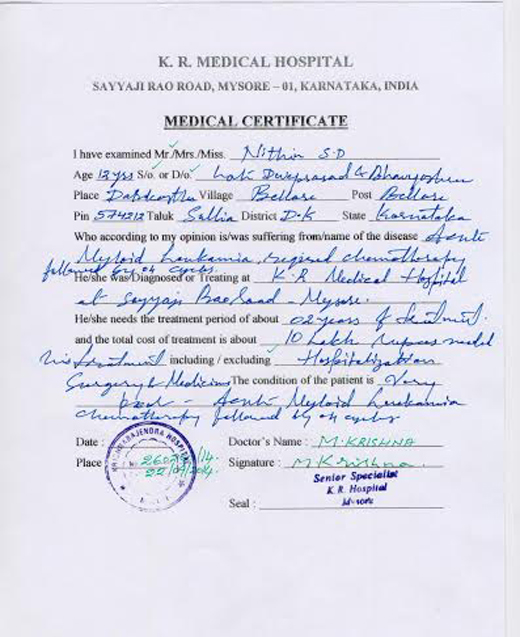 K. R. MEDICAL HOSPITAL
SAYYAJI RAO ROAD, MYSORE – 01, KARNATAKA, INDIA
MEDICAL CERTIFICATE
I have examined Mr./Mrs./Miss. Nithin S.D
Age 12 yrs S/o. or D/o.
Place Village Bellare Post Bellare
Pin 574212 Taluk Sullia District D-K State Karnataka
Who according to my opinion is/was suffering from/name of the disease Acute
Myloid Leukamia, chemotherapy
followed by 04 cycles.
He/she was/Diagnosed or Treating at K.R Medical Hospital
at Sayyaji Rao Road - Mysore.
He/she needs the treatment period of about 02 years of treatment.
and the total cost of treatment is about 10 Lakh rupees
treatment including / excluding Hospitalization
Surgery & Medicine The condition of the patient is Very
bad - Acute Myloid Leukamia
chemotherapy followed by 04 cycles
Date :
Doctor's Name : M.KRISHNA
Place
Signature : M Krishna.
Senior Specialist
K. R. Hospital
Mysore
Seal :